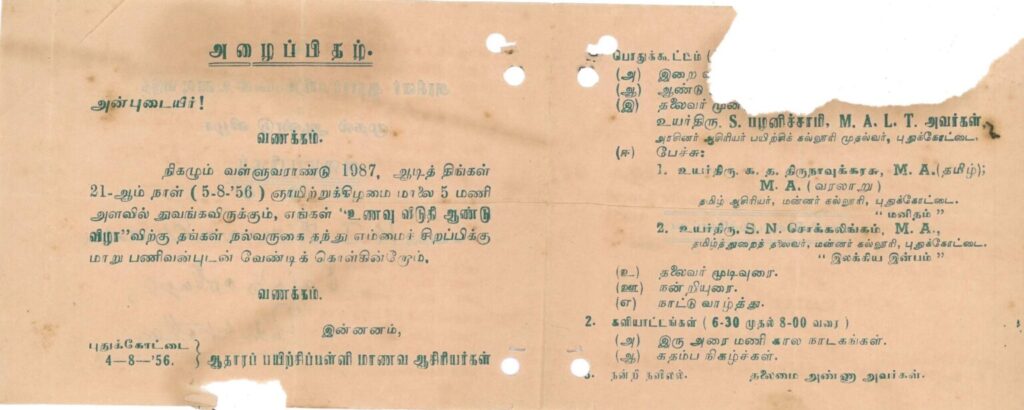 அழைப்பிதழ்.
அன்புடையிர்!
வணக்கம்.
நிகழும் வள்ளுவராண்டு 1987, ஆடித் திங்கள்
21-ஆம் நாள் (5-8-'56) ஞாயிற்றுக்கிழமை மாலை 5 மணி
அளவில் துவங்கவிருக்கும், எங்கள் “உணவு விடுதி ஆண்டு
விழா”விற்கு தங்கள் நல்வருகை தந்து எம்மைச் சிறப்பிக்கு
மாறு பணிவன்புடன் வேண்டிக் கொள்கின்றோம்.
வணக்கம்.
இன்னனம்,
புதுக்கோட்டை
4-8-'56.
ஆதாரப் பயிற்சிப்பள்ளி மாணவ ஆசிரியர்கள்
பொதுக்கூட்டம் (
(அ) இறை
(ஆ) ஆண்டு
(இ) தலைவர்
உயர்திரு. S. பழனிச்சாமி, M. A. L. T. அவர்கள்.
அரசினர் ஆசிரியர் பயிற்சிக் கல்லூரி முதல்வர், புதுக்கோட்டை.
(ஈ) பேச்சு:
1. உயர்திரு. க. த. திருநாவுக்கரசு, M. A.(தமிழ்);
M. A. (வரலாறு)
தமிழ் ஆசிரியர், மன்னர் கல்லூரி, புதுக்கோட்டை.
“மனிதம்”
2. உயர்திரு. S. N. சொக்கலிங்கம், M. A.,
தமிழ்த்துறைத் தலைவர், மன்னர் கல்லூரி, புதுக்கோட்டை.
“இலக்கிய இன்பம்”
(உ) தலைவர் முடிவுரை.
(ஊ) நன்றியுரை.
(எ) நாட்டு வாழ்த்து.
2. களியாட்டங்கள் (6-30 முதல் 8-00 வரை)
(அ) இரு அரை மணி கால நாடகங்கள்.
(ஆ) கதம்ப நிகழ்ச்கள்.
நன்றி நவிலல். தலைமை அண்ணா அவர்கள்.